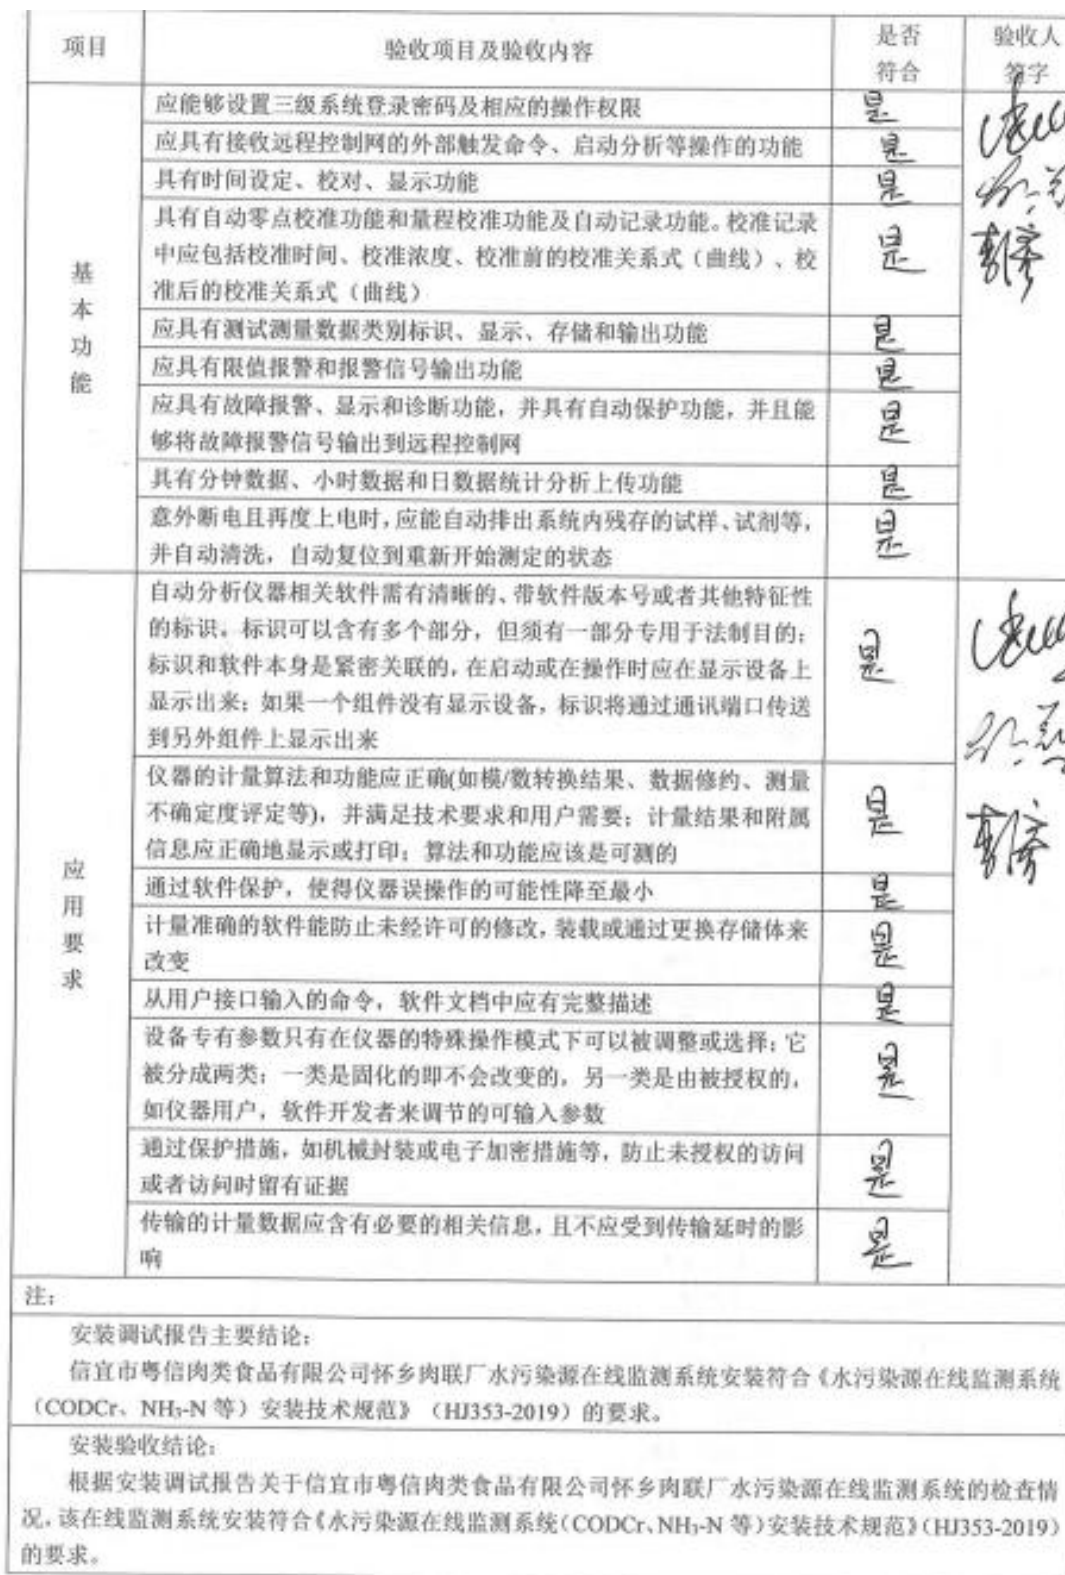 项目
验收项目及验收内容
是否
符合
验收人
签字
基本功能
应能够设置三级系统登录密码及相应的操作权限
是
应具有接收远程控制网的外部触发命令、启动分析等操作的功能
是
具有时间设定、校对、显示功能
是
具有自动零点校准功能和量程校准功能及自动记录功能。校准记录
中应包括校准时间、校准浓度、校准前的校准关系式（曲线）、校
准后的校准关系式（曲线）
是
应具有测试测量数据类别标识、显示、存储和输出功能
是
应具有限值报警和报警信号输出功能
是
应具有故障报警、显示和诊断功能，并具有自动保护功能，并且能
够将故障报警信号输出到远程控制网
是
具有分钟数据、小时数据和日数据统计分析上传功能
是
意外断电且再度上电时，应能自动排出系统内残存的试样、试剂等，
并自动清洗，自动复位到重新开始测定的状态
是
应用要求
自动分析仪器相关软件需有清晰的、带软件版本号或者其他特征性
的标识。标识可以含有多个部分，但须有一部分专用于法制目的；
标识和软件本身是紧密关联的，在启动或在操作时应在显示设备上
显示出来；如果一个组件没有显示设备，标识将通过通讯端口传送
到另外组件上显示出来
是
仪器的计量算法和功能应正确(如模/数转换结果、数据修约、测量
不确定度评定等)，并满足技术要求和用户需要；计量结果和附属
信息应正确地显示或打印；算法和功能应该是可测的
是
通过软件保护，使得仪器误操作的可能性降至最小
是
计量准确的软件能防止未经许可的修改，装载或通过更换存储体来
改变
是
从用户接口输入的命令，软件文档中应有完整描述
是
设备专有参数只有在仪器的特殊操作模式下可以被调整或选择；它
被分成两类；一类是固化的即不会改变的，另一类是由被授权的，
如仪器用户，软件开发者来调节的可输入参数
是
通过保护措施，如机械封装或电子加密措施等，防止未授权的访问
或者访问时留有证据
是
传输的计量数据应含有必要的相关信息，且不应受到传输延时的影
响
是
注：
安装调试报告主要结论：
信宜市粤信肉类食品有限公司怀乡肉联厂水污染源在线监测系统安装符合《水污染源在线监测系统
（CODCr、NH₃-N 等）安装技术规范》（HJ353-2019）的要求。
安装验收结论：
根据安装调试报告关于信宜市粤信肉类食品有限公司怀乡肉联厂水污染源在线监测系统的检查情
况，该在线监测系统安装符合《水污染源在线监测系统（CODCr、NH₃-N 等）安装技术规范》（HJ353-2019）
的要求。